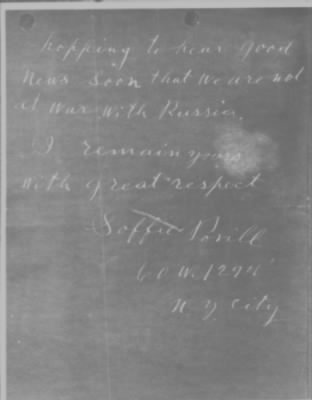 hopping to hear good
News soon that we are not
at war with Russia.
I remain yours
with great respect
Soffie
60 W. 129th
N Y City